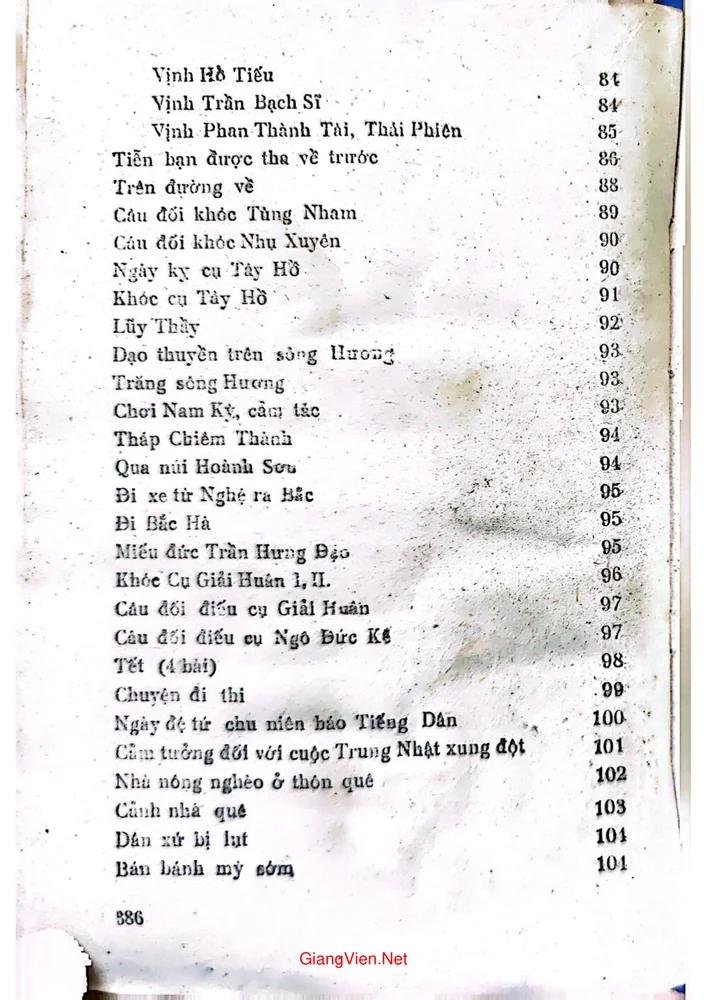 Vịnh Hồ Tiếu 84
Vịnh Trần Bạch Sĩ 84
Vịnh Phan Thành Tài, Thái Phiên 85
Tiễn bạn được tha về trước 86
Trên đường về 88
Câu đối khóc Tùng Nham 89
Câu đối khóc Nhụ Xuyên 90
Ngày kỵ cụ Tây Hồ 90
Khóc cụ Tây Hồ 91
Lũy Thầy 92
Dạo thuyền trên sông Hương 93
Trăng sông Hương 93
Chơi Nam Kỳ, cảm tác 93
Tháp Chiêm Thành 94
Qua núi Hoành Sơn 94
Đi xe từ Nghệ ra Bắc 95
Đi Bắc Hà 95
Miếu đức Trần Hưng Đạo 95
Khóc Cụ Giải Huân I, II. 96
Câu đối điếu cụ Giải Huân 97
Câu đối điếu cụ Ngô Đức Kế 97
Tết (4 bài) 98
Chuyện đi thi 99
Ngày đệ tứ chu niên báo Tiếng Dân 100
Cảm tưởng đối với cuộc Trung Nhật xung đột 101
Nhà nông nghèo ở thôn quê 102
Cảnh nhà quê 103
Dân xứ bị lụt 104
Bán bánh mỳ sớm 104
386
GiangVien.Net